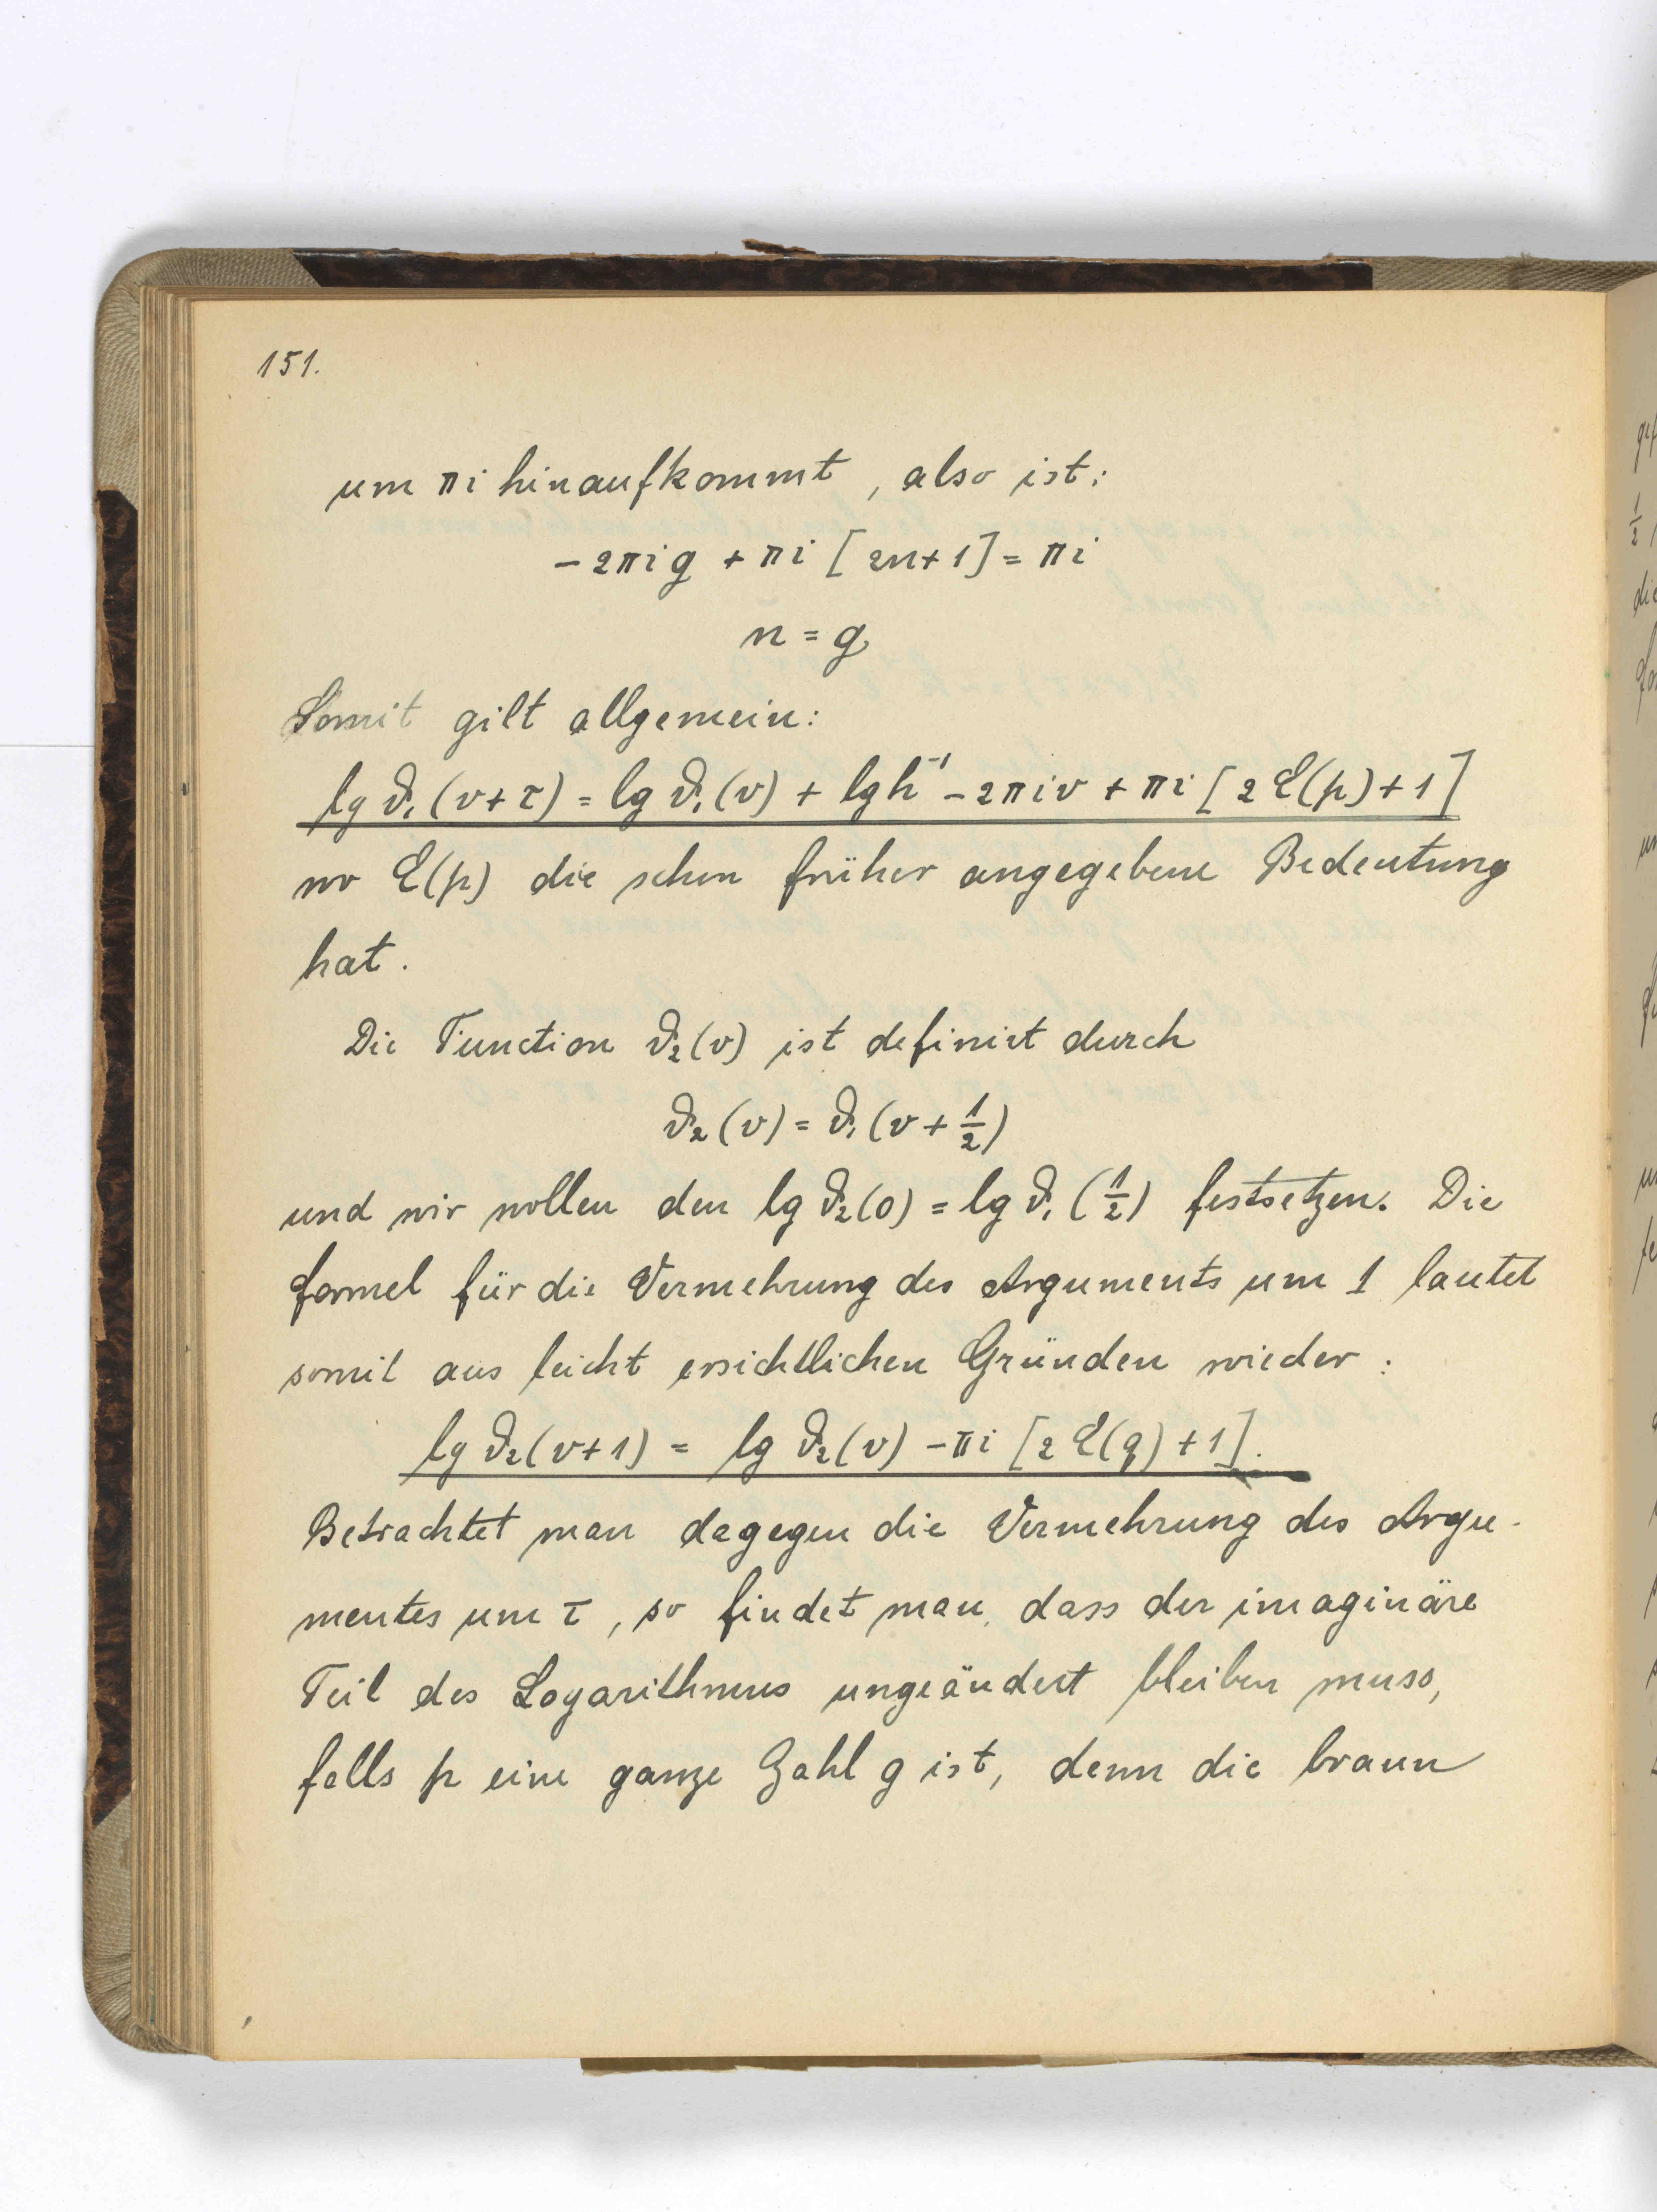 151.
um πi hinaufkommt, also ist:
-2πig + πi [2n+1] = πi
n = g
Somit gilt allgemein:
lg ϑ₁(v+τ) = lg ϑ₁(v) + lg h⁻¹ - 2πiv + πi [2E(p)+1]
wo E(p) die schon früher angegebene Bedeutung
hat.
Die Function ϑ₂(v) ist definirt durch
ϑ₂(v) = ϑ₁(v + 1/2)
und wir wollen den lg ϑ₂(0) = lg ϑ₁(1/2) festsetzen. Die
Formel für die Vermehrung des Arguments um 1 lautet
somit aus leicht ersichtlichen Gründen wieder:
lg ϑ₂(v+1) = lg ϑ₂(v) - πi [2E(q)+1].
Betrachtet man dagegen die Vermehrung des Argu-
mentes um τ, so findet man, dass der imaginäre
Teil des Logarithmus ungeändert bleiben muss,
falls p eine ganze Zahl g ist, denn die braun